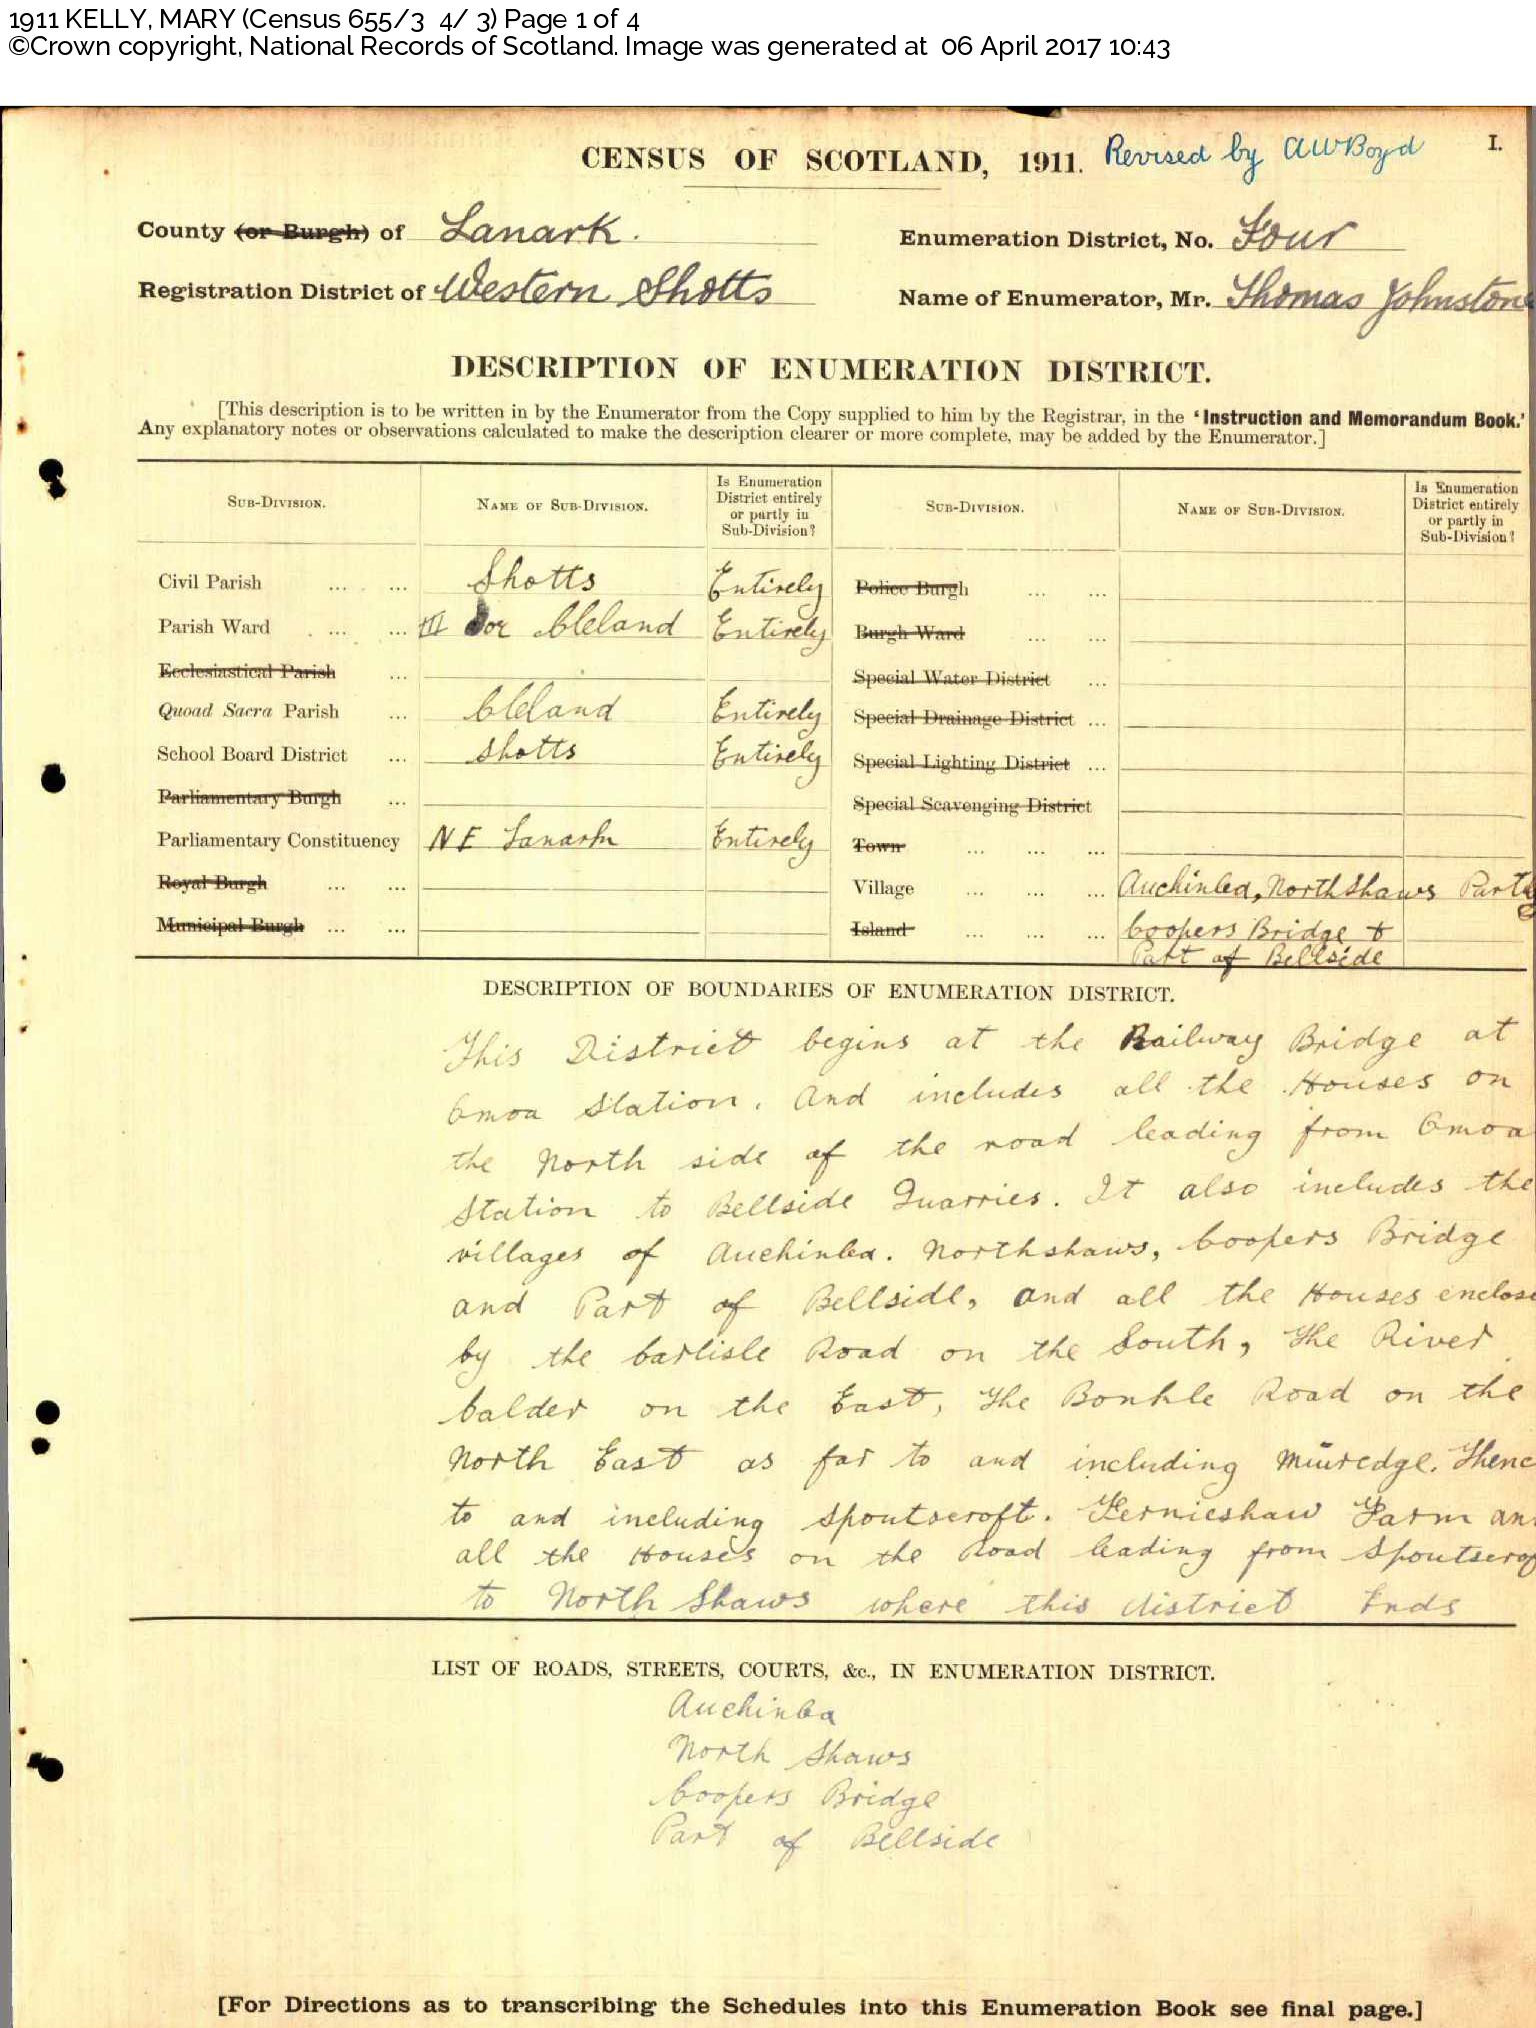 1911 KELLY, MARY (Census 655/3 4/ 3) Page 1 of 4
©Crown copyright, National Records of Scotland. Image was generated at 06 April 2017 10:43
CENSUS OF SCOTLAND, 1911. Revised by AWBoyd I.
County (or Burgh) of Lanark. Enumeration District, No. Four
Registration District of Western Shotts Name of Enumerator, Mr. Thomas Johnstone
DESCRIPTION OF ENUMERATION DISTRICT.
[This description is to be written in by the Enumerator from the Copy supplied to him by the Registrar, in the 'Instruction and Memorandum Book.'
Any explanatory notes or observations calculated to make the description clearer or more complete, may be added by the Enumerator.]
SUB-DIVISION. NAME OF SUB-DIVISION. Is Enumeration District entirely or partly in Sub-Division? SUB-DIVISION. NAME OF SUB-DIVISION. Is Enumeration District entirely or partly in Sub-Division?
Civil Parish ... ... Shotts Entirely Police Burgh ... ...
Parish Ward ... ... III or Cleland Entirely Burgh Ward ... ...
Ecclesiastical Parish ... Special Water District ...
Quoad Sacra Parish ... Cleland Entirely Special Drainage District ...
School Board District ... Shotts Entirely Special Lighting District ...
Parliamentary Burgh ... Special Scavenging District
Parliamentary Constituency N E Lanark Entirely Town ... ... ...
Royal Burgh ... ... Village ... ... ... Auchinlea, Northshaws Partly
Municipal Burgh ... ... Island ... ... ... Coopers Bridge &
Part of Bellside
DESCRIPTION OF BOUNDARIES OF ENUMERATION DISTRICT.
This District begins at the Railway Bridge at
Omoa Station. And includes all the Houses on
the North side of the road leading from Omoa
Station to Bellside Quarries. It also includes the
villages of Auchinlea. Northshaws, Coopers Bridge
and Part of Bellside, and all the Houses enclose
by the Carlisle Road on the South, The River
Calder on the East, The Bonkle Road on the
North East as far to and including Muiredge. Thenc
to and including Spoutscroft. Fernieshaw Farm an
all the Houses on the Road leading from Spoutscrof
to North Shaws where this district Ends
LIST OF ROADS, STREETS, COURTS, &c., IN ENUMERATION DISTRICT.
Auchinlea
North Shaws
Coopers Bridge
Part of Bellside
[For Directions as to transcribing the Schedules into this Enumeration Book see final page.]